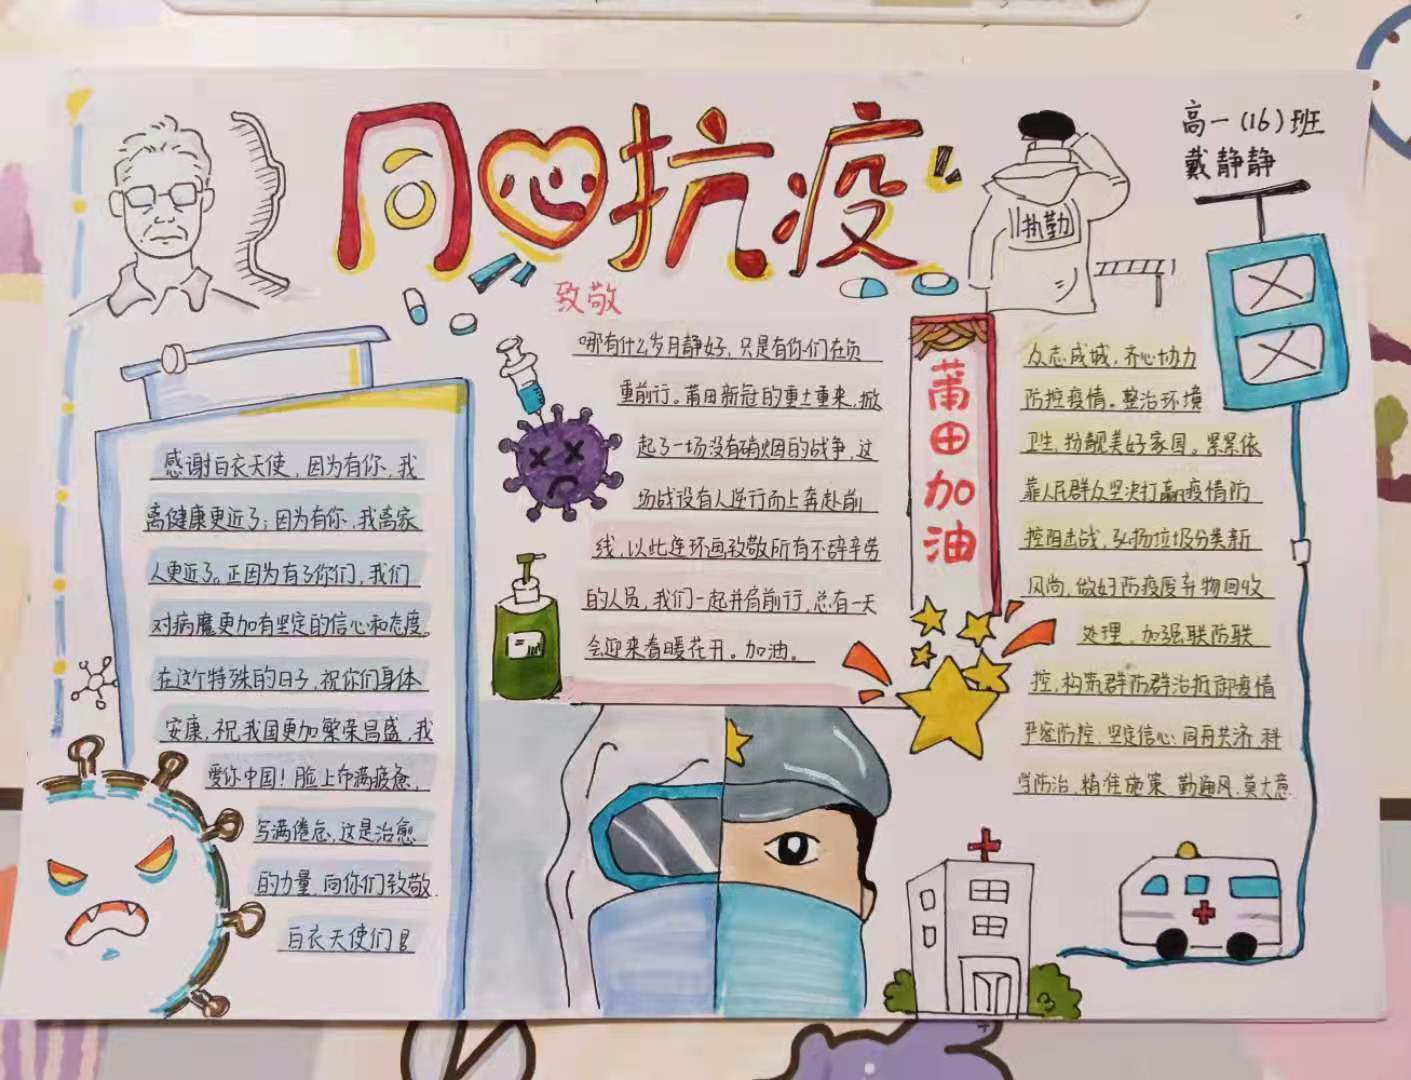 同心抗疫
高一(16)班
戴静静
执勤
致敬
感谢白衣天使，因为有你，我
离健康更近了；因为有你，我离家
人更近了。正因为有了你们，我们
对病魔更加有坚定的信心和态度。
在这个特殊的日子，祝你们身体
安康，祝我国更加繁荣昌盛，我
爱你中国！脸上布满疲惫，
写满倦怠，这是治愈
的力量，向你们致敬
白衣天使们！
哪有什么岁月静好，只是有你们在负
重前行。莆田新冠的重土重来，掀
起了一场没有硝烟的战争，这
场战设有人逆行而上奔赴前
线，以此连环画致敬所有不辞辛劳
的人员，我们一起并肩前行，总有一天
会迎来春暖花开。加油。
莆田加油
众志成城，齐心协力
防控疫情。整治环境
卫生，扮靓美好家园。紧紧依
靠人民群众坚决打赢疫情防
控阻击战，弘扬垃圾分类新
风尚，做好防疫废弃物回收
处理，加强联防联
控，构筑群防群治抵御疫情
严密防控，坚定信心，同舟共济，科
学防治，精准施策，勤通风，莫大意